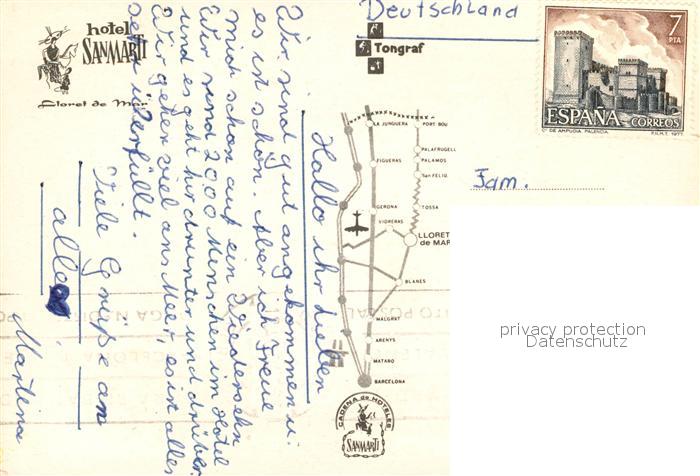 hotel
SANMARTI
Lloret de Mar
Deutschland
Tongraf
7
PTA
ESPAÑA
CORREOS
Cº DE AMPUDIA. PALENCIA.
F.N.M.T. 1977
Hallo ihr Lieben
Wir sind gut angekommen u.
es ist schön. Aber ich freue
mich schon auf ein Wiedersehn
Wir sind 2000 Menschen im Hotel
und es geht hir drunter und drüber.
Wir gehen viel ans Meer, es ist alles
sehr überfüllt.
Viele Grüße an
alle
Martina
Fam.
LA JUNQUERA
PORT BOU
PALAFRUGELL
PALAMOS
San FELIU
FIGUERAS
GERONA
TOSSA
VIDRERAS
LLORET
de MAR
BLANES
MALGRAT
ARENYS
MATARO
BARCELONA
CADENA de HOTELES
SANMARTI
privacy protection
Datenschutz